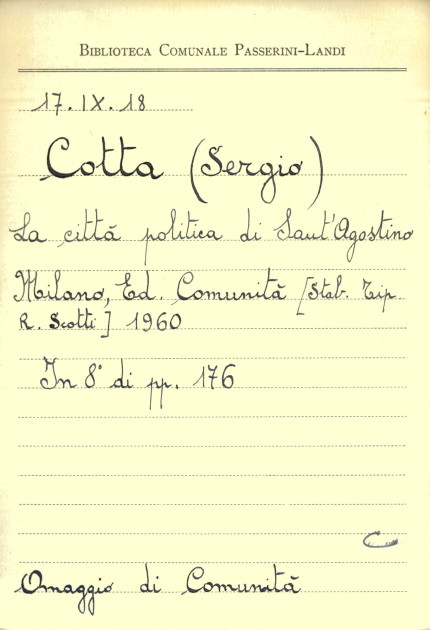 BIBLIOTECA COMUNALE PASSERINI-LANDI
17. IX. 18
Cotta (Sergio)
La città politica di Sant'Agostino
Milano, Ed. Comunità [Stab. Tip.
R. Scotti] 1960
In 8° di pp. 176
C
Omaggio di Comunità